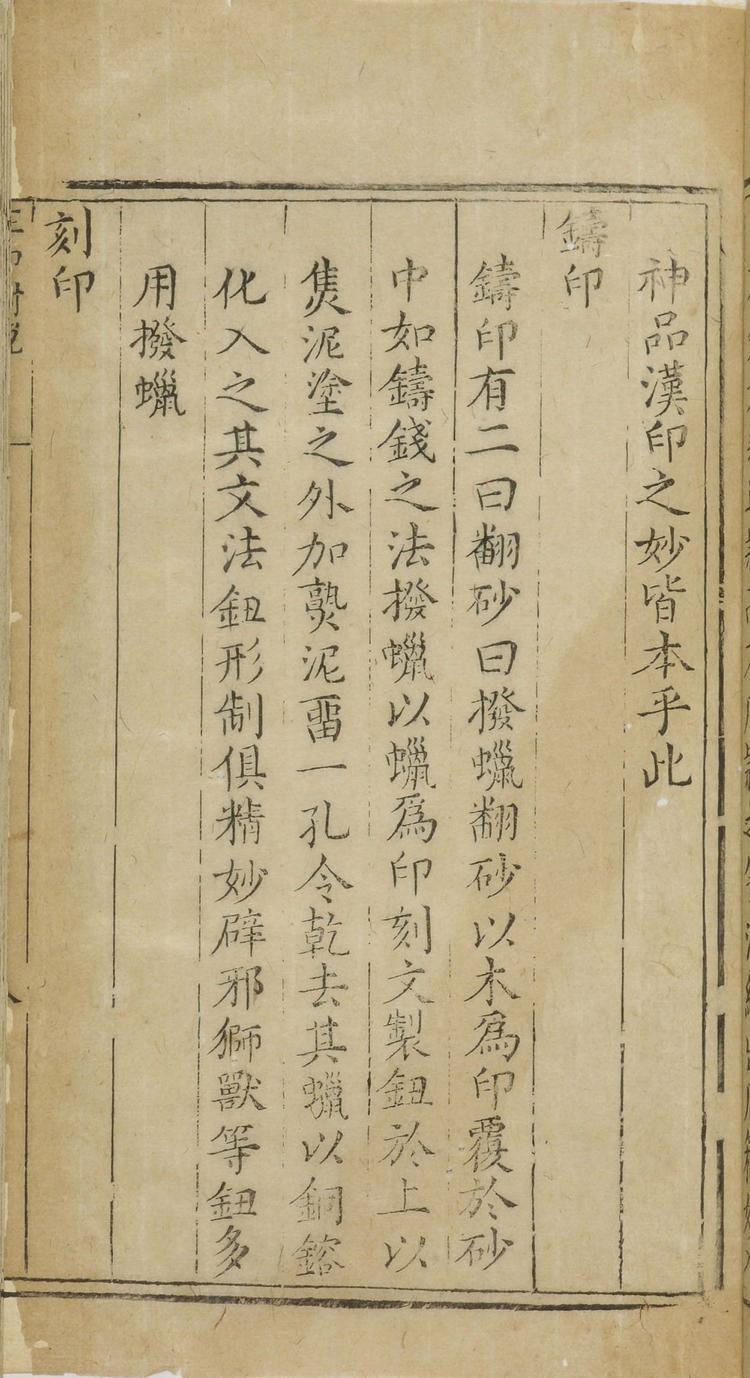 神品漢印之妙皆本乎此
鑄印
鑄印有二曰翻砂曰撥蠟翻砂以木爲印覆於砂
中如鑄錢之法撥蠟以蠟爲印刻文製鈕於上以
焦泥塗之外加熟泥畱一孔令乾去其蠟以銅鎔
化入之其文法鈕形制俱精妙辟邪獅獸等鈕多
用撥蠟
刻印